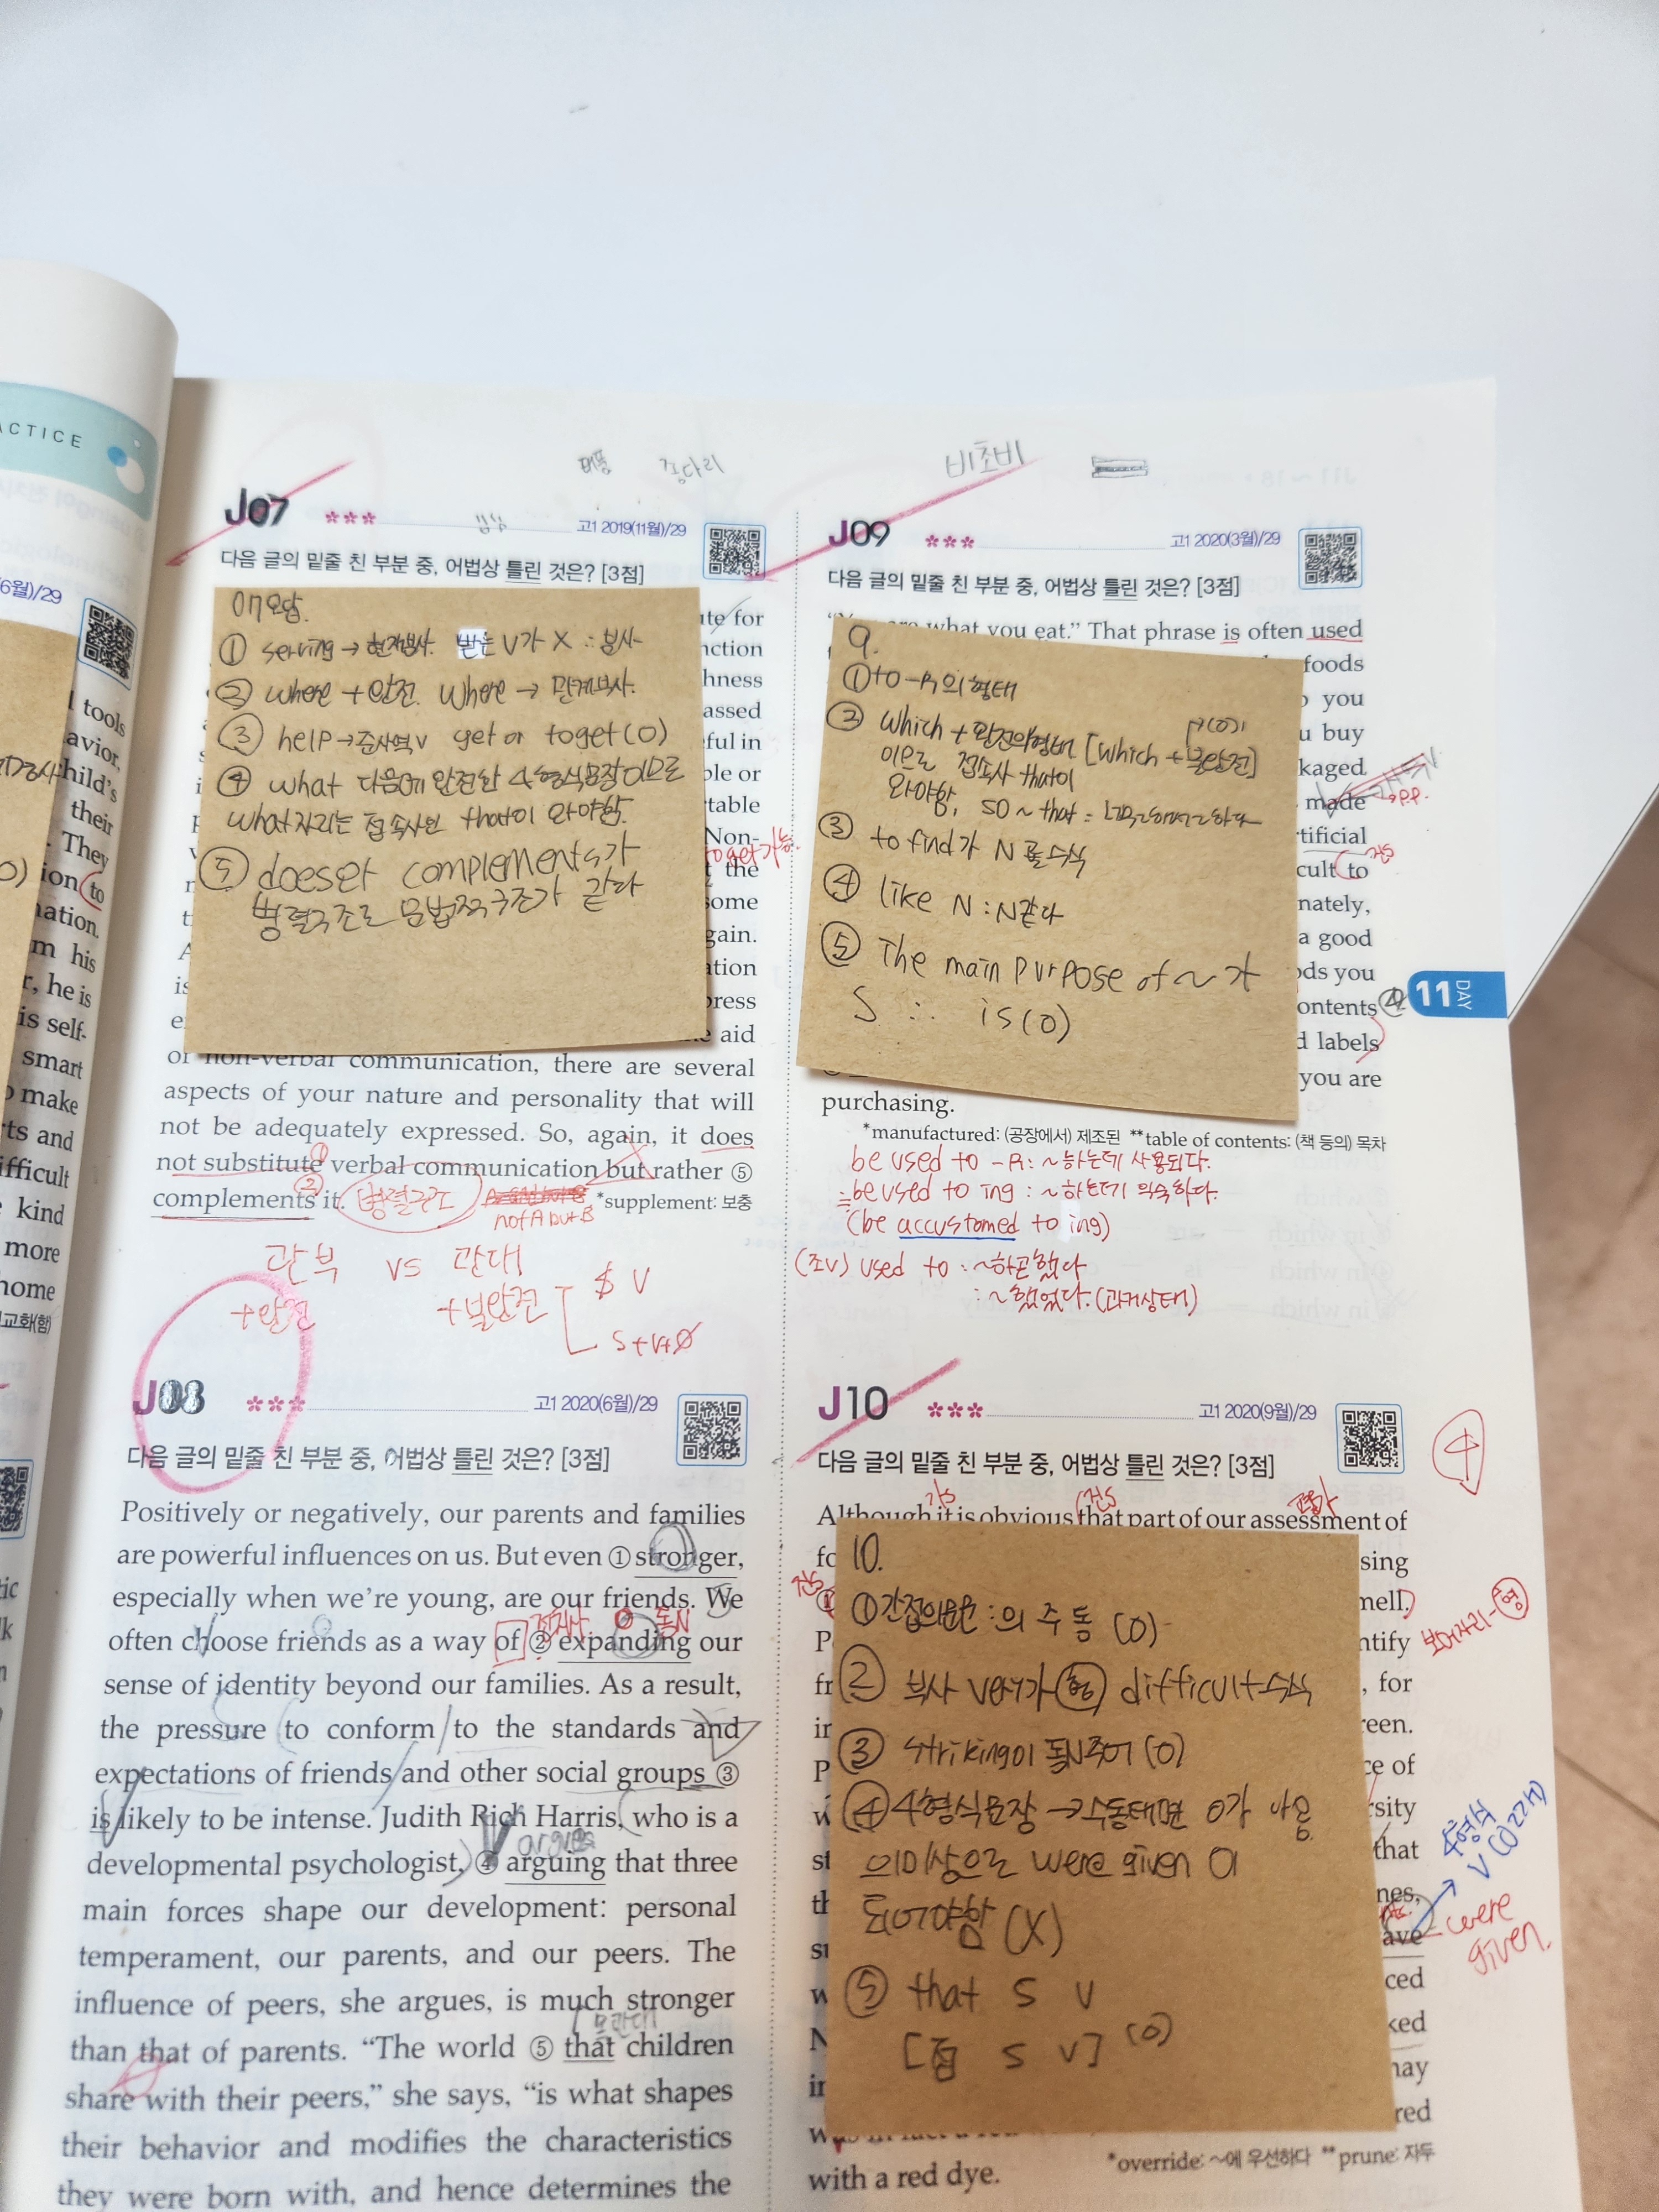 ACTICE
6월)/29
l tools
avior,
child's
their
. They
ion to
nation.
m his
r, he is
is self-
smart
o make
rts and
ifficult
kind
more
home
교화(함)
J07 *** 고1 2019(11월)/29
다음 글의 밑줄 친 부분 중, 어법상 틀린 것은? [3점]
07오답.
① serving → 현재분사. 받는 V가 X ∴ 분사
② where + 완전. Where → 관계부사.
③ help → 준사역v get or to get (O)
④ what 다음에 완전한 4형식문장이므로
what자리는 접속사인 that이 와야함.
⑤ does와 complements가
병렬구조로 문법적구조가 같다
ute for
nction
hness
assed
ful in
ple or
table
Non-
to get 가능.
t the
some
gain.
ation
press
e aid
of non-verbal communication, there are several
aspects of your nature and personality that will
not be adequately expressed. So, again, it does
not substitute verbal communication but rather ⑤
complements it. 병렬구조 *supplement: 보충
not A but B
관부 vs 관대
+완전 +불완전 S V
S+V+O
J08 *** 고1 2020(6월)/29
다음 글의 밑줄 친 부분 중, 어법상 틀린 것은? [3점]
Positively or negatively, our parents and families
are powerful influences on us. But even ① stronger,
especially when we're young, are our friends. We
전치사 동N
often choose friends as a way of ② expanding our
sense of identity beyond our families. As a result,
the pressure to conform to the standards and
expectations of friends and other social groups ③
is likely to be intense. Judith Rich Harris, who is a
argues
developmental psychologist, ④ arguing that three
main forces shape our development: personal
temperament, our parents, and our peers. The
influence of peers, she argues, is much stronger
목관대
than that of parents. "The world ⑤ that children
share with their peers," she says, "is what shapes
their behavior and modifies the characteristics
they were born with, and hence determines the
비초비
J09 *** 고1 2020(3월)/29
다음 글의 밑줄 친 부분 중, 어법상 틀린 것은? [3점]
what you eat." That phrase is often used
foods
o you
u buy
kaged
made
→p.p.
tificial
cult to
nately,
a good
ods you
ontents ④
d labels
you are
purchasing.
9.
① to-R의 형태
② which + 완전의형태 [which + 불완전]
이므로 접속사 that이
와야함. so ~ that =
③ to find가 N을 수식
④ like N : N같다
⑤ The main purpose of ~ 가
S ∴ is (O)
*manufactured: (공장에서) 제조된 **table of contents: (책 등의) 목차
be used to -R : ~하는데 사용되다.
≠ be used to ing : ~하는데 익숙하다.
(be accustomed to ing)
(조V) used to : ~하곤했다
: ~했었다. (과거상태)
11 DAY
J10 *** 고1 2020(9월)/29
④
다음 글의 밑줄 친 부분 중, 어법상 틀린 것은? [3점]
가S 진S 평가
Although it is obvious that part of our assessment of
sing
mell.
ntify
보어자리-형
, for
reen.
ce of
rsity
that
nes,
ave
were
given.
4형식
V (O 2개)
ced
ked
nay
red
10.
① 간접의문문 : 의 주 동 (O)
② 부사 very가 형 difficult수식
③ striking이 동N주어 (O)
④ 4형식문장 → 수동태면 O가 나옴
의미상으로 were given 이
되어야함 (X)
⑤ that S V
[접 S V] (O)
with a red dye.
*override: ~에 우선하다 **prune: 자두